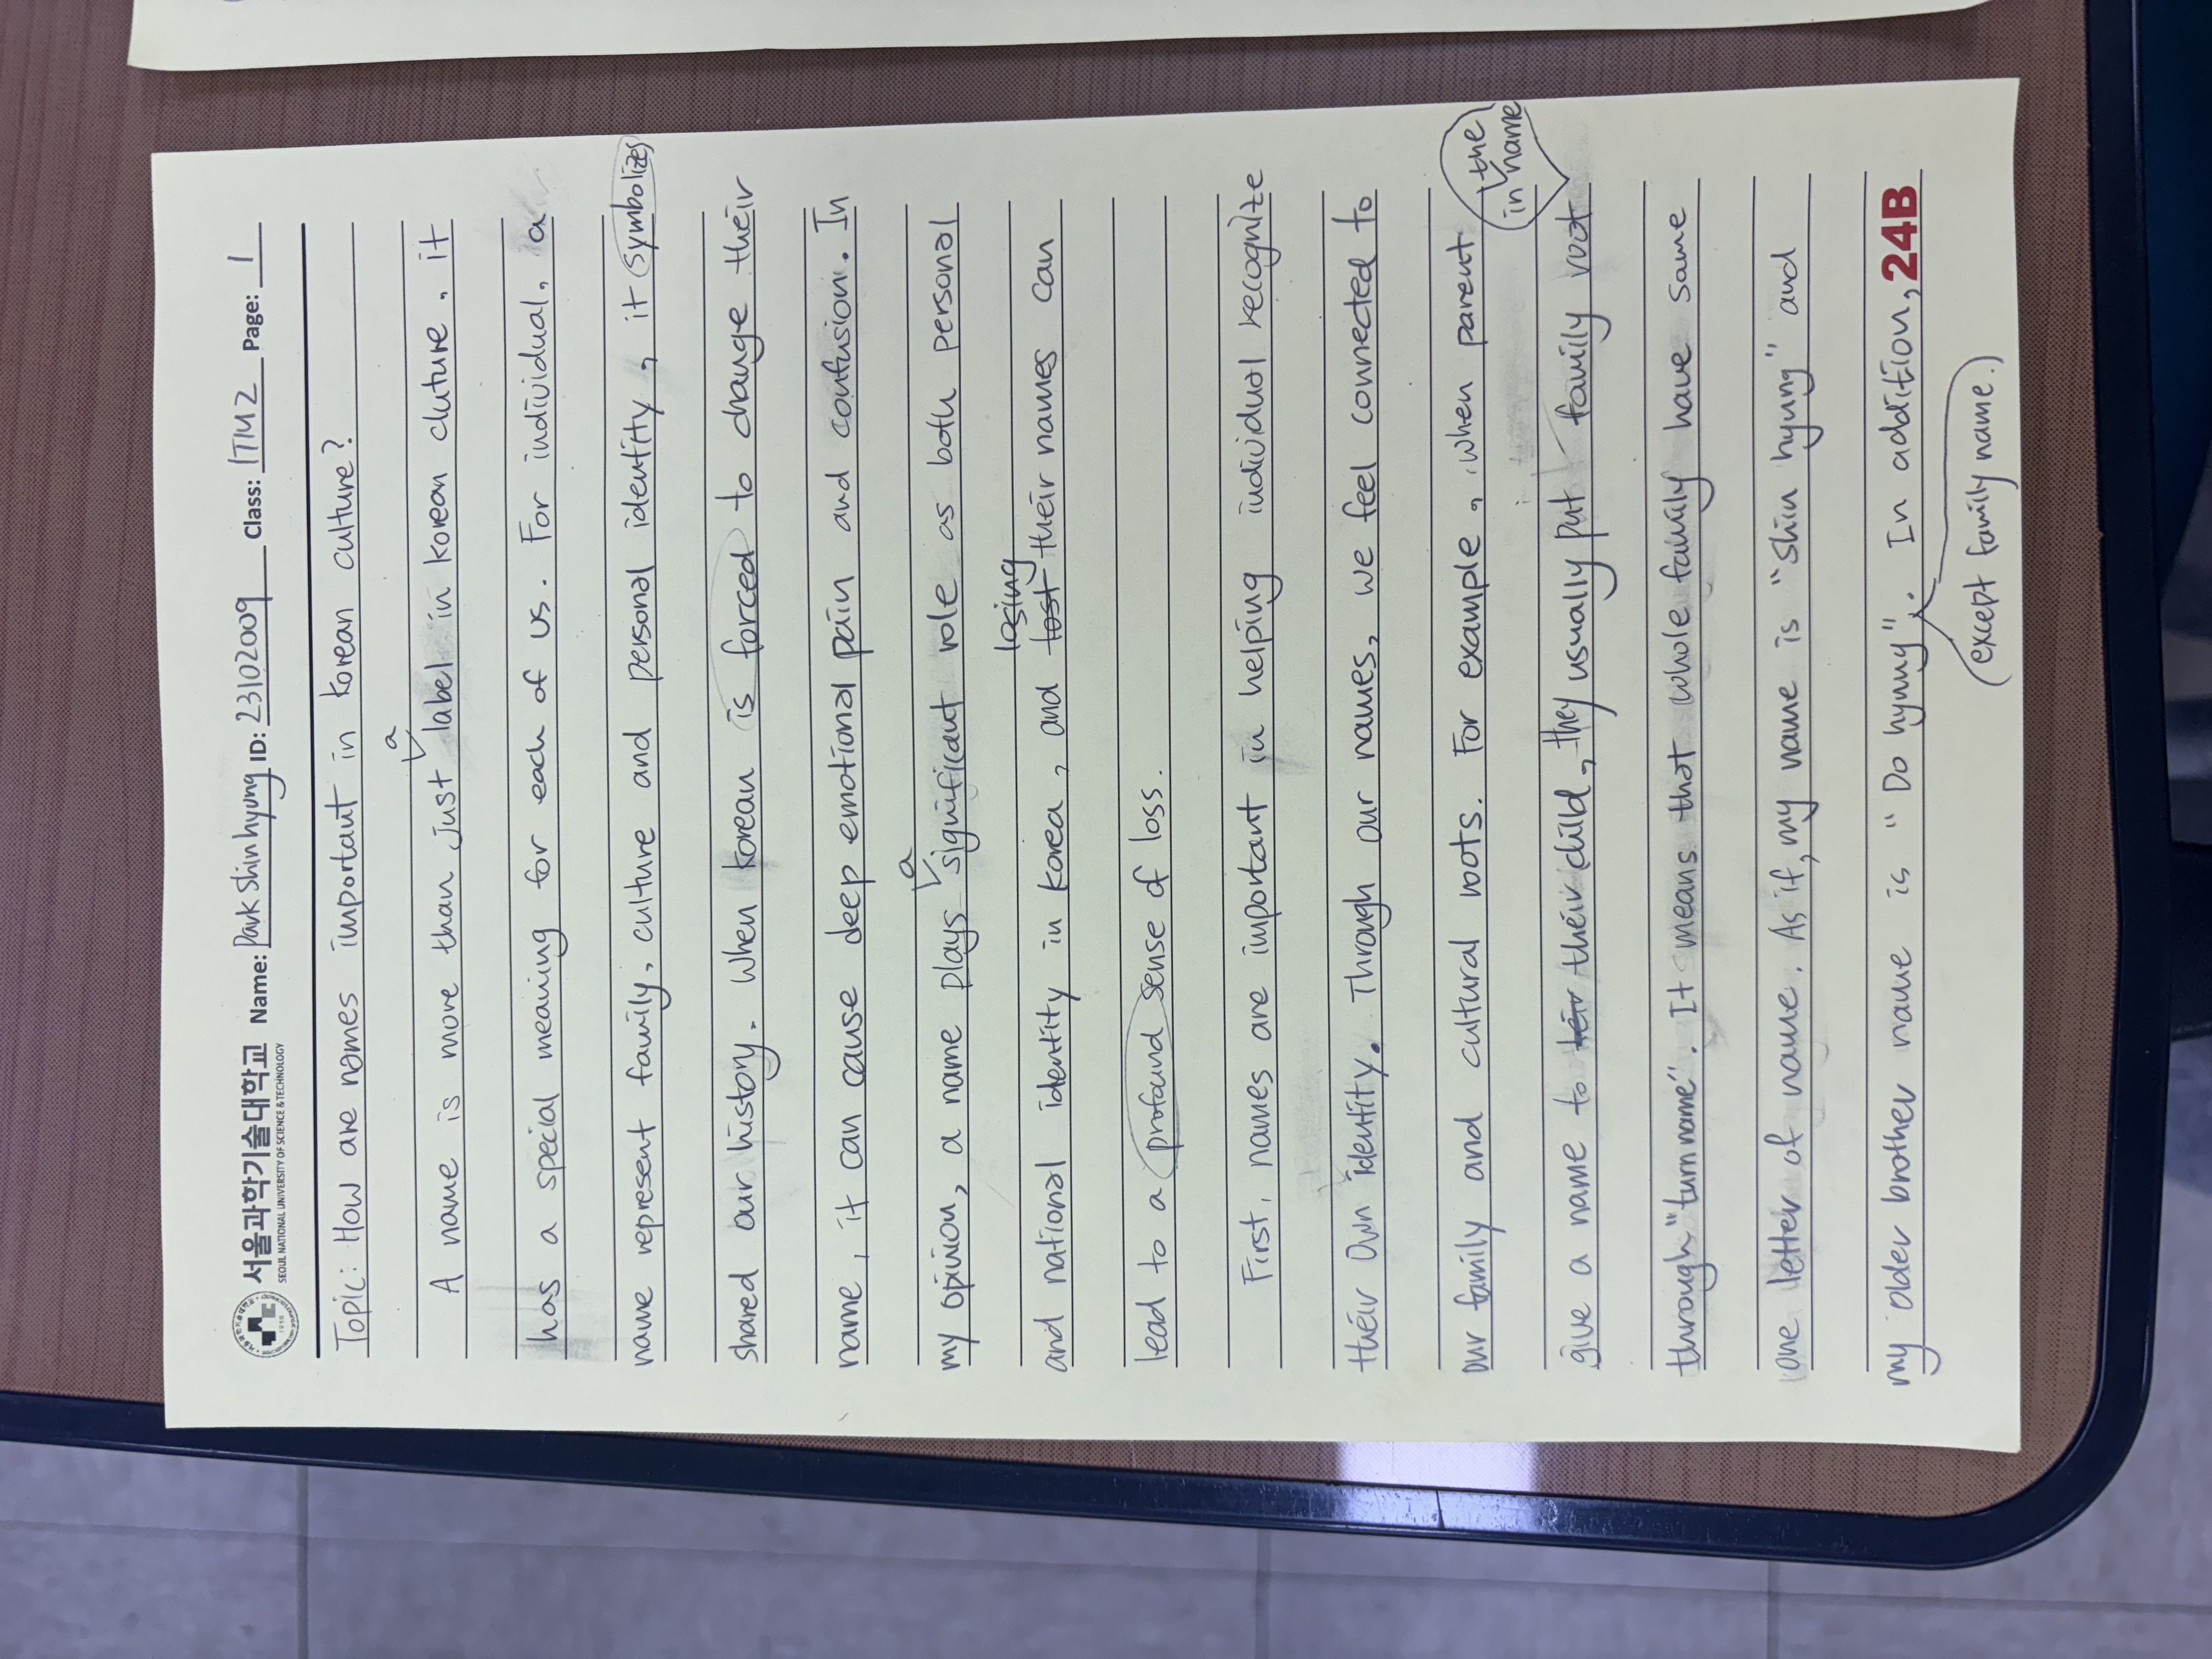 서울과학기술대학교 Name: Park Shin hyung ID: 23102009 Class: ITM 2 Page: 1
SEOUL NATIONAL UNIVERSITY OF SCIENCE & TECHNOLOGY
1910
Topic: How are names important in korean culture?
a
A name is more than just label in korean cluture, it
has a special meaning for each of us. For individual, a
name represent family, culture and personal identity, it symbolizes
shared our history. When korean is forced to change their
name, it can cause deep emotional pain and confusion. In
a
my opinion, a name plays significant role as both personal
losing
and national identity in korea, and lost their names can
lead to a profound sense of loss.
First, names are important in helping individual recognize
their own identity. Through our names, we feel connected to
our family and cultural roots. For example, when parent
the
in name
give a name to teir their child, they usually put family root
through "turn name". It means that whole family have same
one letter of name. As if, my name is "Shin hyung" and
my older brother name is "Do hyung". In addition, 24B
(except family name.)